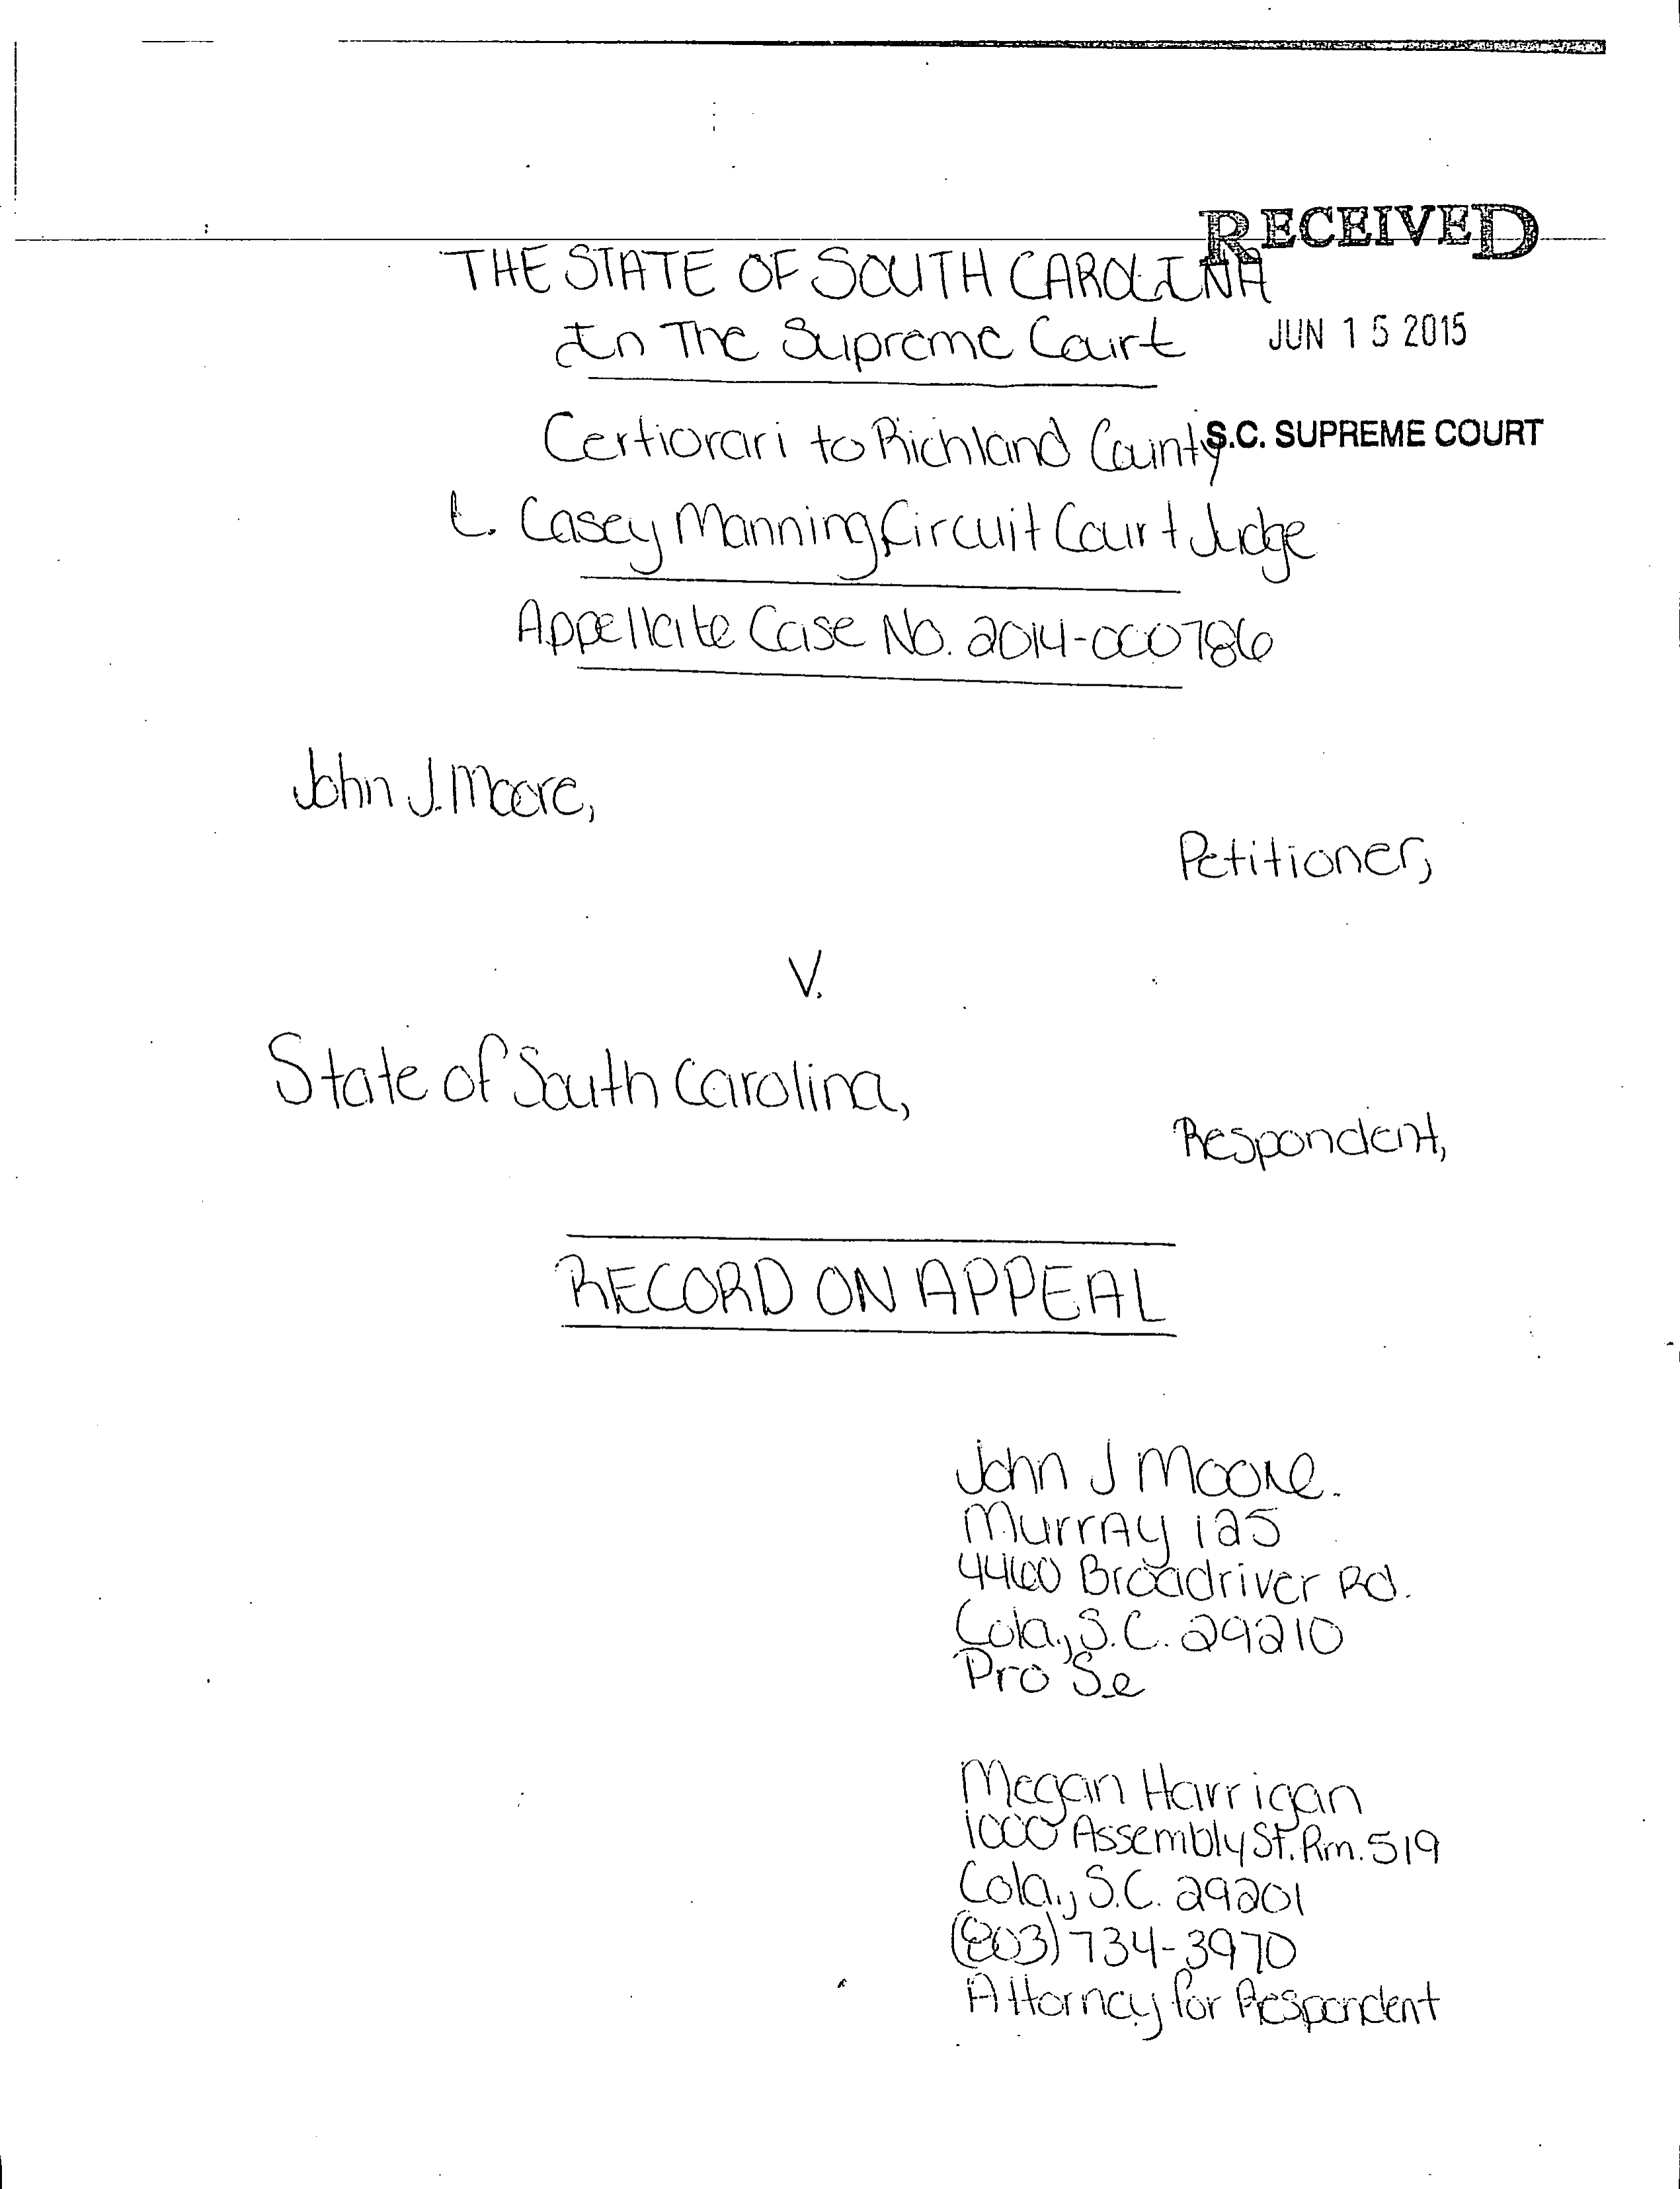 RECEIVED
THE STATE OF SOUTH CAROLINA
In The Supreme Court
JUN 15 2015
Certiorari to Richland County
S.C. SUPREME COURT
L. Casey Manning, Circuit Court Judge
Appellate Case No. 2014-000786
John J. Moore,
Petitioner,
V.
State of South Carolina,
Respondent,
RECORD ON APPEAL
John J Moore.
Murray 125
4460 Broadriver Rd.
Cola., S.C. 29210
Pro Se
Megan Harrigan
1000 Assembly St. Rm. 519
Cola., S.C. 29201
(803) 734-3970
Attorney for Respondent